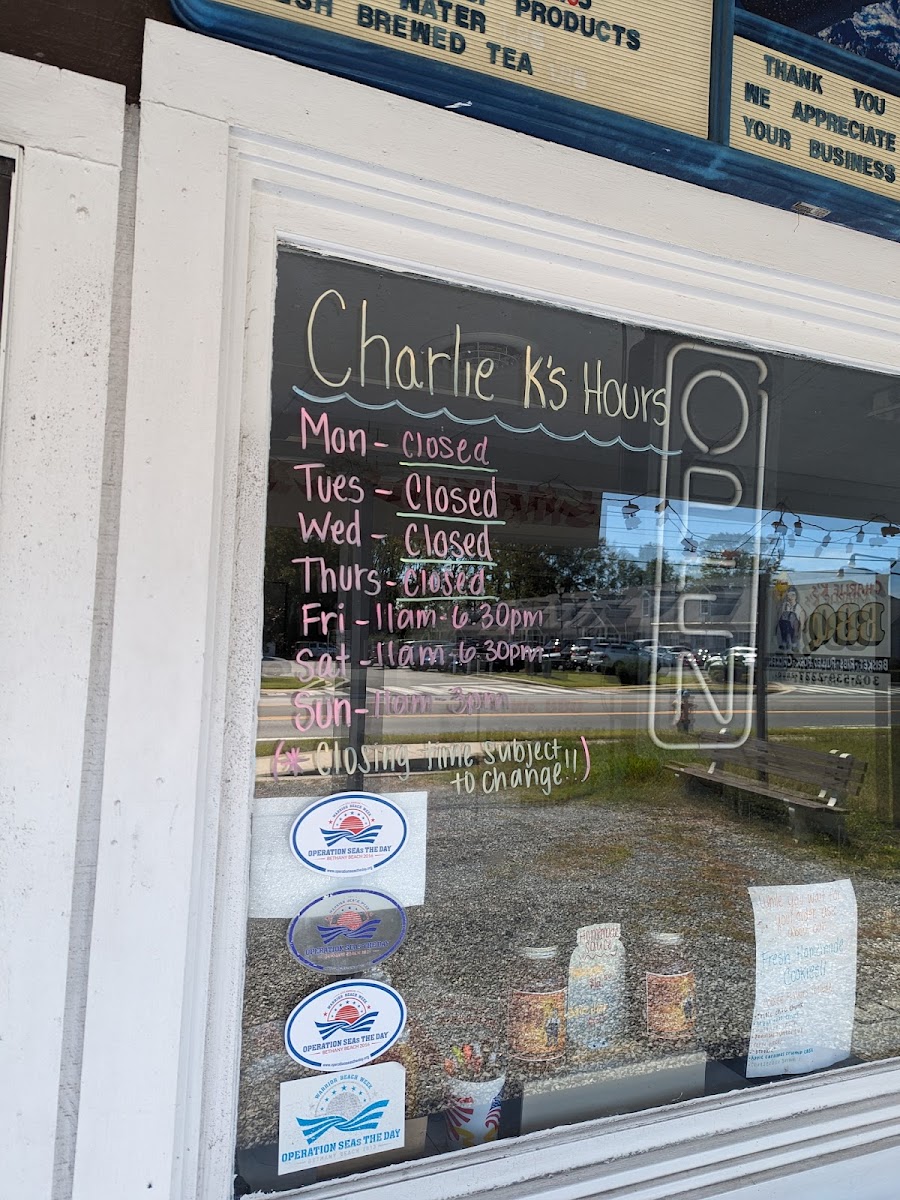 WATER PRODUCTS
FRESH BREWED TEA
THANK YOU
WE APPRECIATE
YOUR BUSINESS
Charlie K's Hours
OPEN
Mon - Closed
Tues - Closed
Wed - Closed
Thurs - Closed
Fri - 11am - 6:30pm
Sat - 11am - 6:30pm
Sun - 11am - 3pm
(* Closing time subject
to change!!)
BBQ
WARRIOR BEACH WEEK
OPERATION SEAs THE DAY
BETHANY BEACH 2014
www.operationseastheday.org
OPERATION SEAs THE DAY
WARRIOR BEACH WEEK
OPERATION SEAs THE DAY
www.operationseastheday.org
WARRIOR BEACH WEEK
OPERATION SEAs THE DAY
BETHANY BEACH 2013
Fresh Homemade
Cookies!!